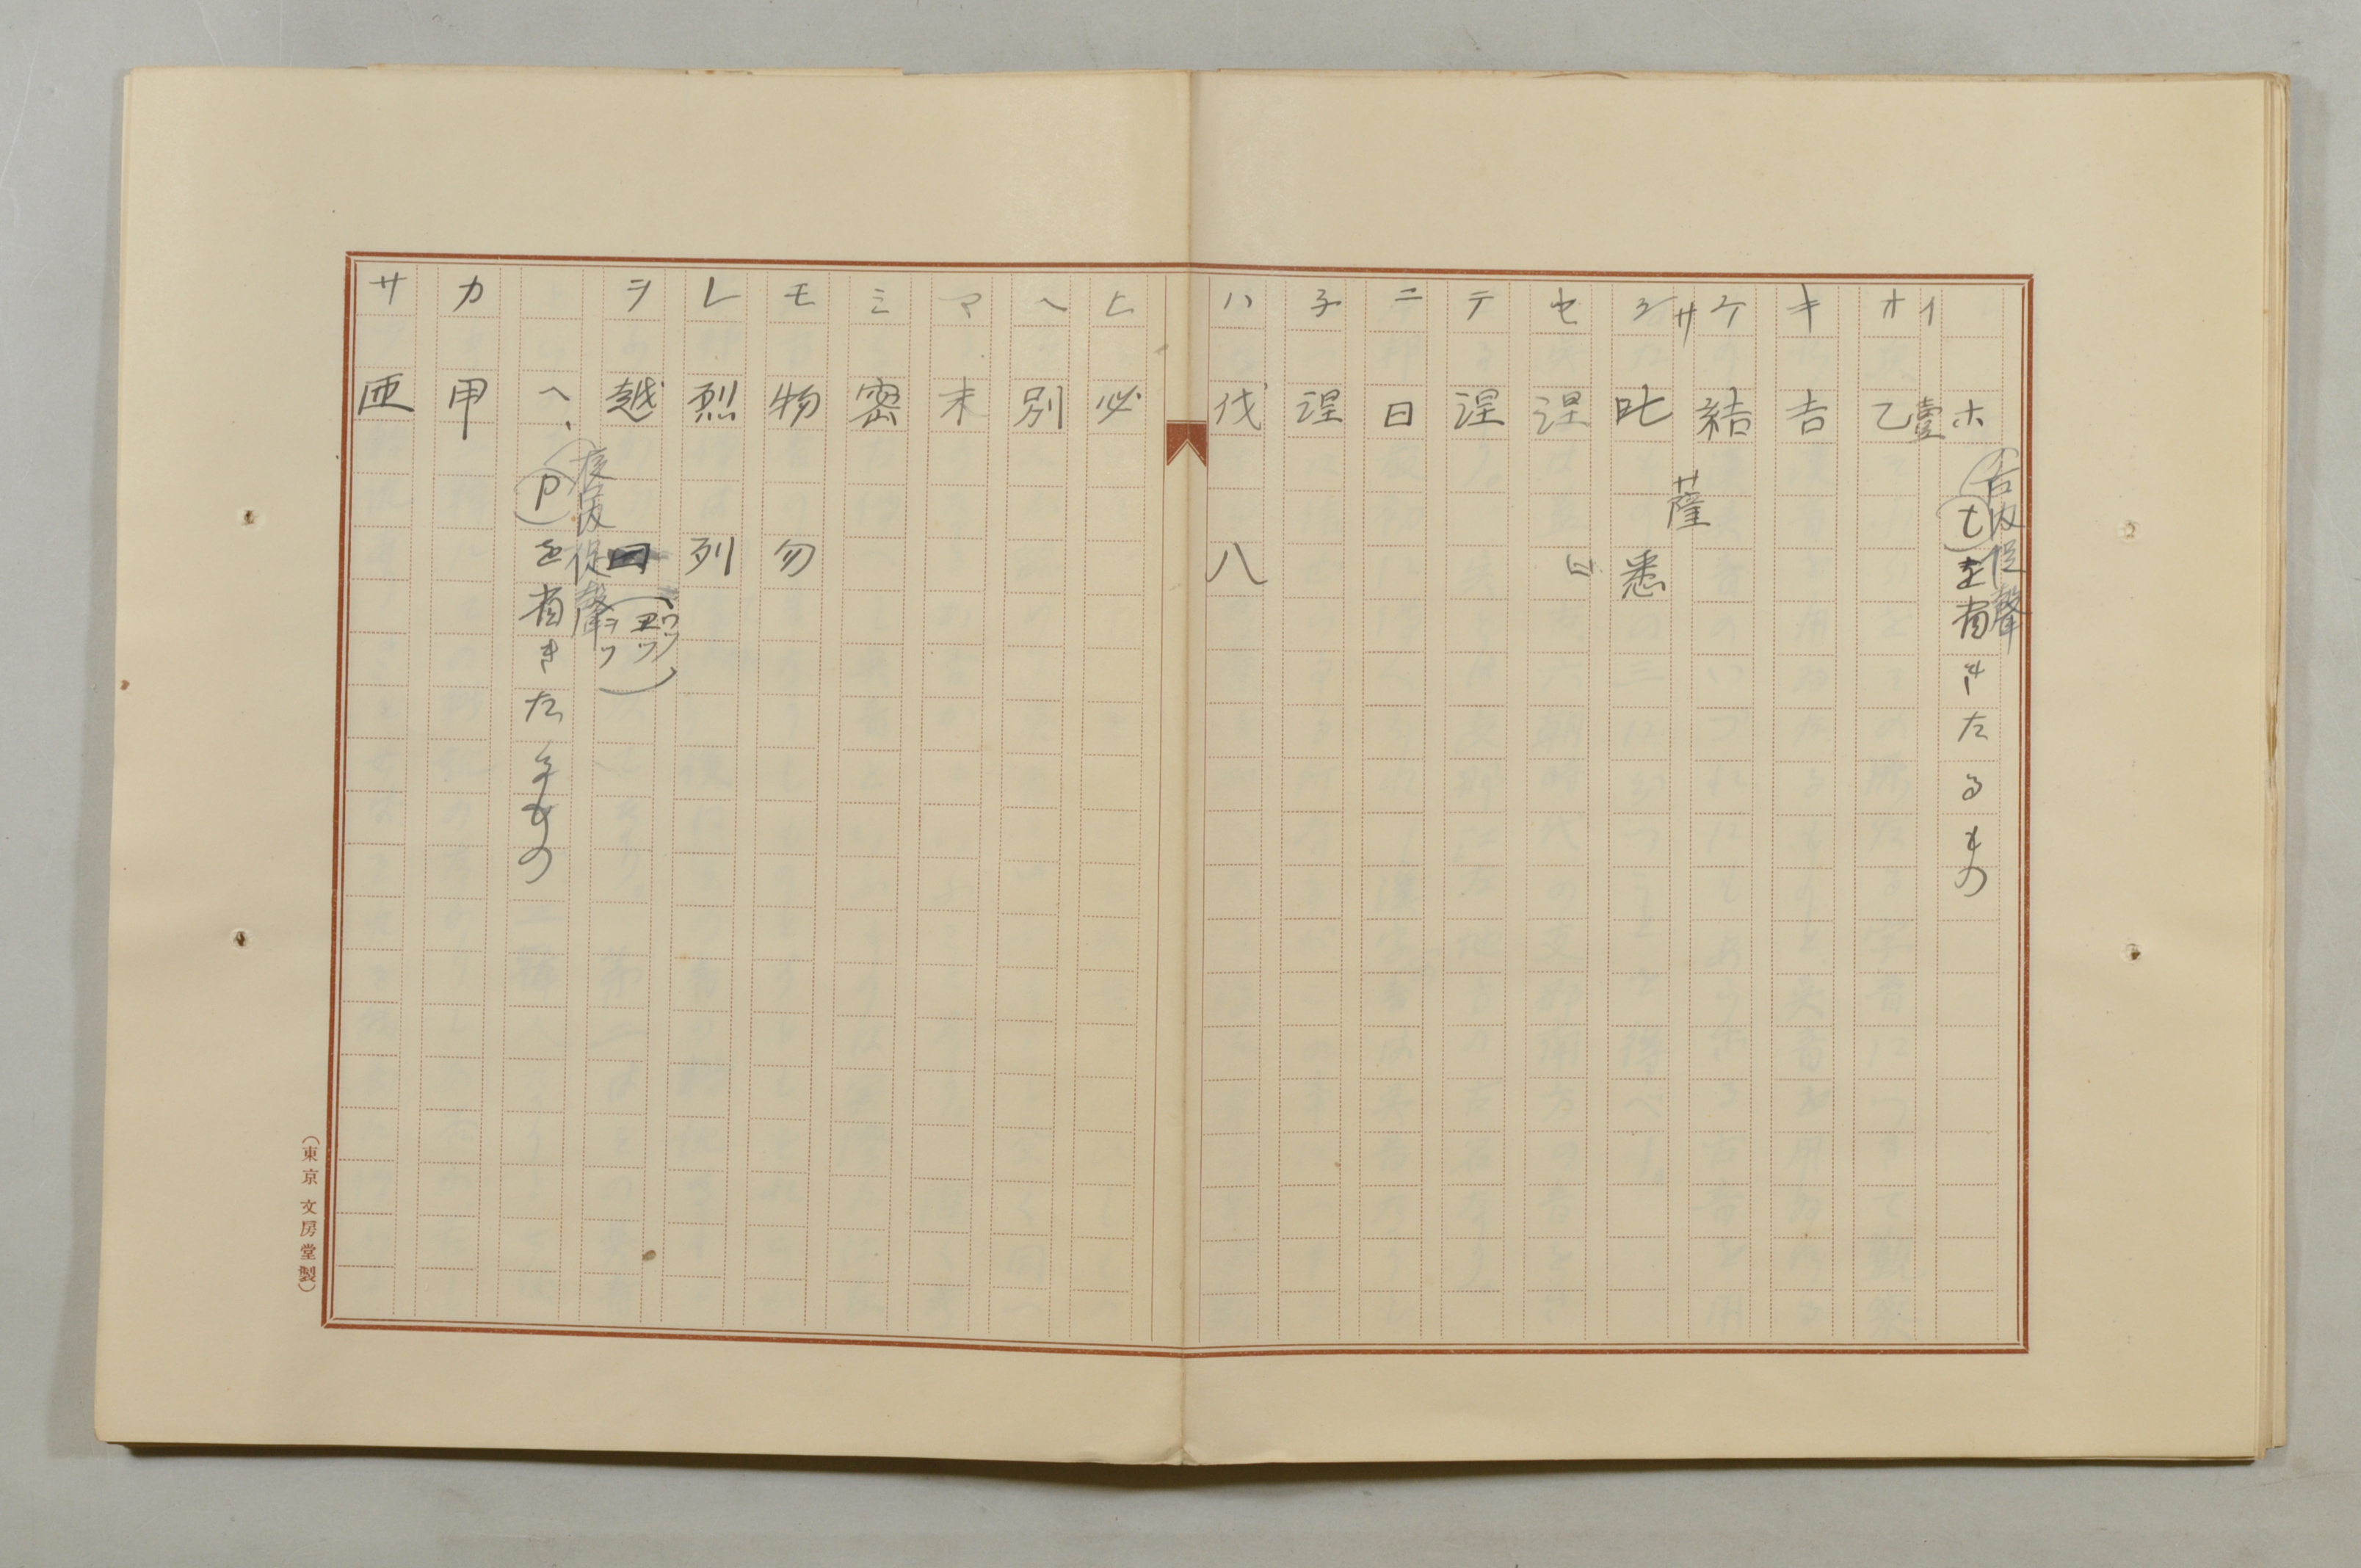 ホ、(t)を省きたるもの
舌内促聲
イ 壹
オ 乙
キ 吉
ケ 結
サ 薩
シ 叱 悉
セ 涅
テ 涅
ニ 日
子 涅
ハ 伐 八
ヒ 必
ヘ 別
マ 末
ミ 密
モ 物 勿
レ 烈 列
ヲ 越
へ、(P)を省きたるもの
唇内促聲
カ 甲
サ 匝
(東京 文房堂製)